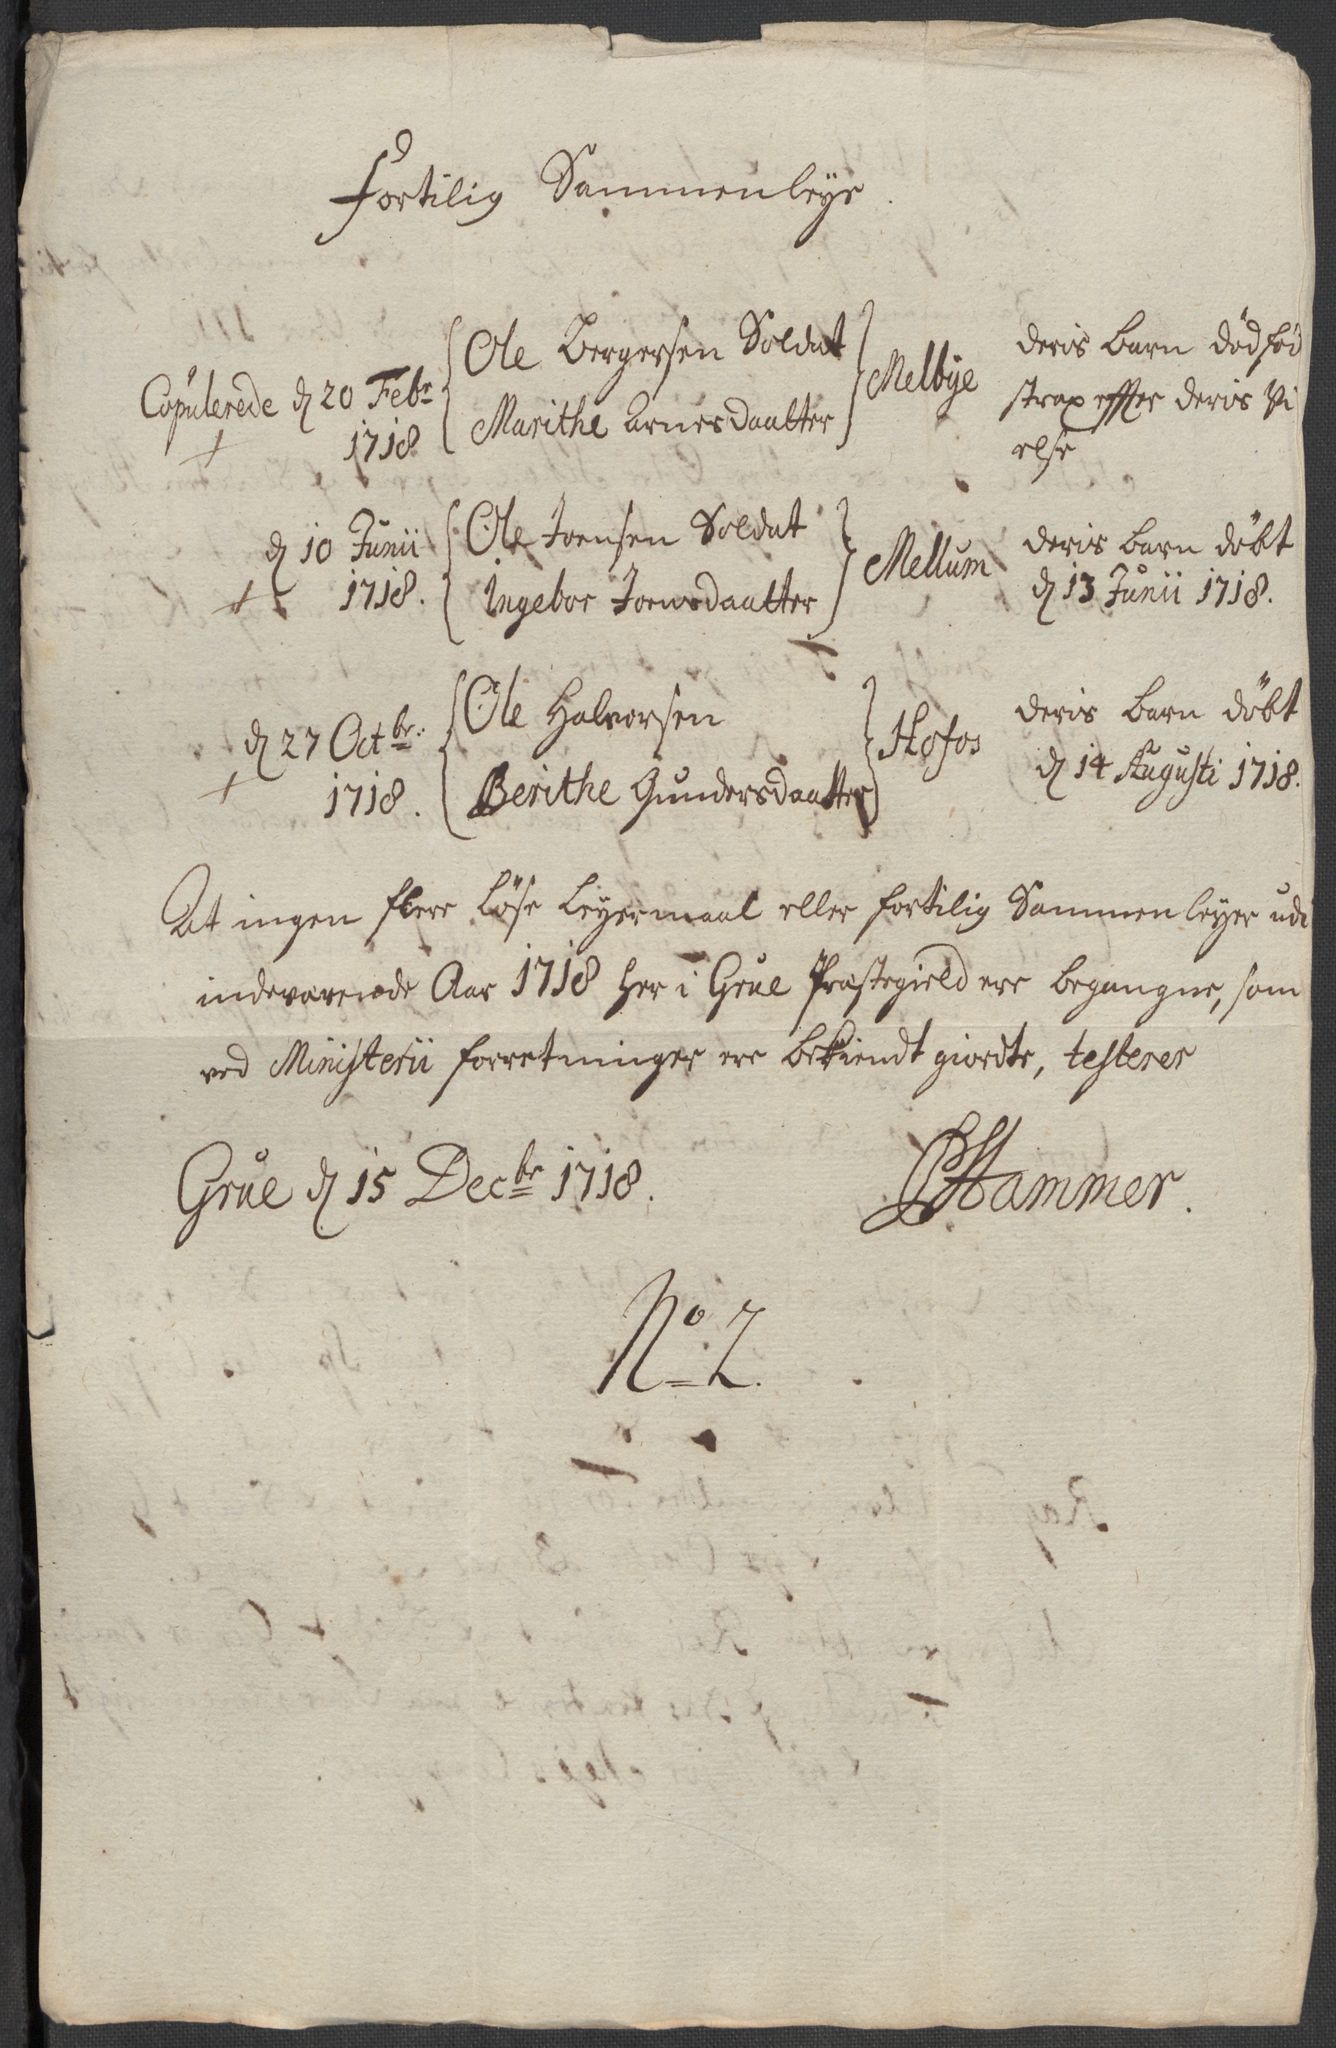 Fortilig Sammenleye.
Copulerede d 20 Febr 1718 + { Ole Bergersen Soldat } Melbye deris barn dødfød
Marithe Arnesdaatter strax effter deris Vi
else
d 10 Junii 1718. + { Ole Joensen Soldat } Mellum deris barn døbt
Ingebor Joensdaatter d 13 Junii 1718.
d 27 Octbr: 1718. + { Ole Halvorsen } Hofos deris barn døbt
Berithe Gundersdaatter d 14 Augusti 1718.
At ingen flere løse Leyermaal eller fortilig Sammenleyer udi
indeværende Aar 1718 her i Grue Præstegield ere begangne, som
ved Ministerii forretninger ere bekiendt giordte, testerer
Grue d 15 Decbr 1718. Hammer.
No 2.